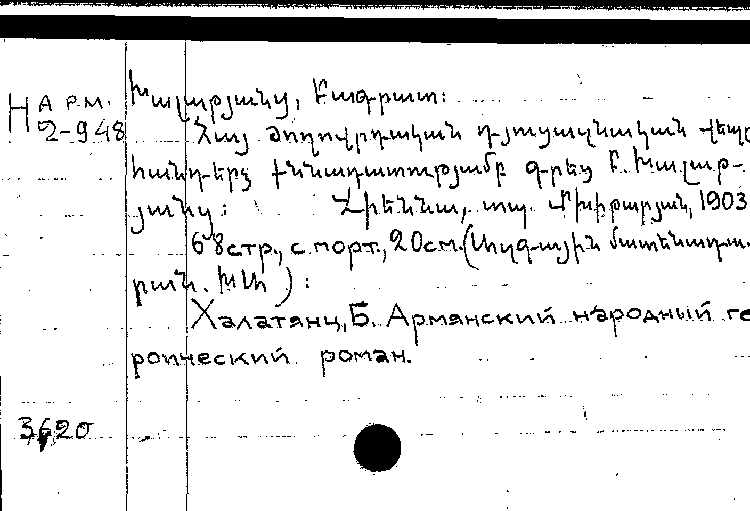 Н АРМ. 2-948
Խալաթյանց, Բագրատ:
Հայ ժողովրդական դյուցազնական վեպը
հանդերձ քննադատությամբ գրեց Բ. Խալաթ-
յանց: Վիեննա, տպ. Մխիթարյան, 1903
68стр., с порт., 20см. (Ազգային մատենադա-
րան. ԽԱ):
Халатянц, Б. Армянский народный ге
роический роман.
3620